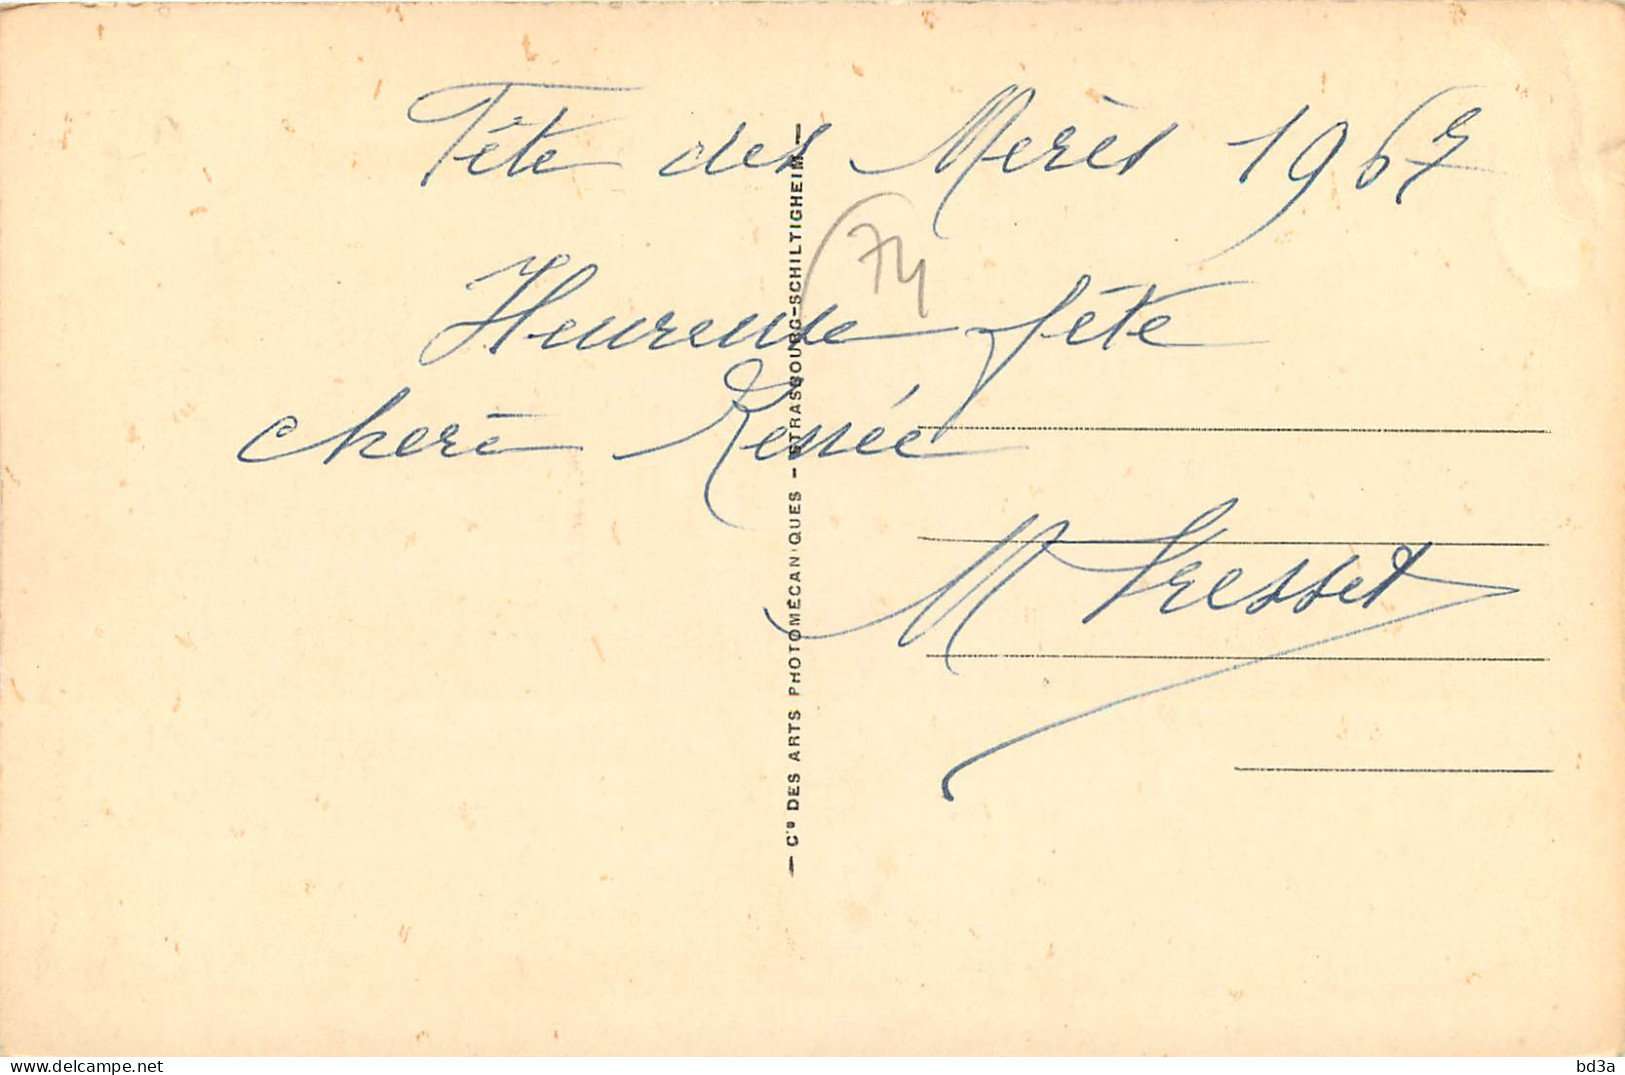 Fête des Merès 1967
74
Heureuse fête
cherè Renée
M Fresset
— Cie DES ARTS PHOTOMÉCANIQUES — STRASBOURG-SCHILTIGHEIM —
bd3a